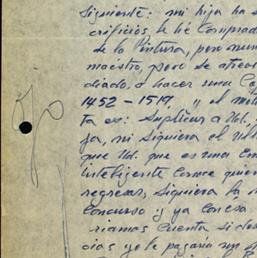 siguiente: mi hija ha s
crificios, le hé comprado
de la Pintura, pero nun
maestro, pero se atreve
diado, a hacer una Co
1452 - 1519, y el moti
ta es: Suplicar a Ud.
ja, ni siquiera el
que Ud. que es una Em
inteligente como quie
regresar, siquiera la
Concurso y ya con esa
riamos cuenta si de
cias yo le pagaria un